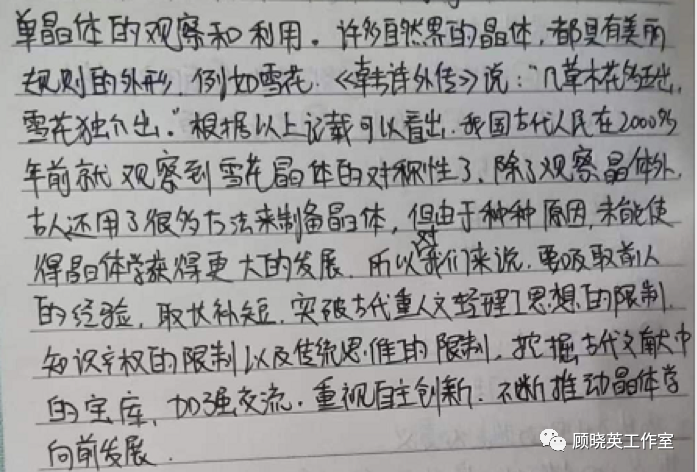 单晶体的观察和利用。许多自然界的晶体,都具有美丽
规则的外形,例如雪花.《韩诗外传》说:“凡草木花多五出,
雪花独六出。”根据以上记载可以看出,我国古代人民在2000多
年前就观察到雪花晶体的对称性了.除了观察晶体外,
古人还用了很多方法来制备晶体,但由于种种原因,未能使
得晶体学获得更大的发展.所以对我们来说,要吸取前人
的经验,取长补短,突破古代重人文轻理工思想的限制,
知识产权的限制以及传统思维的限制,挖掘古代文献中
的宝库,加强交流,重视自主创新.不断推动晶体学
向前发展.
顾晓英工作室